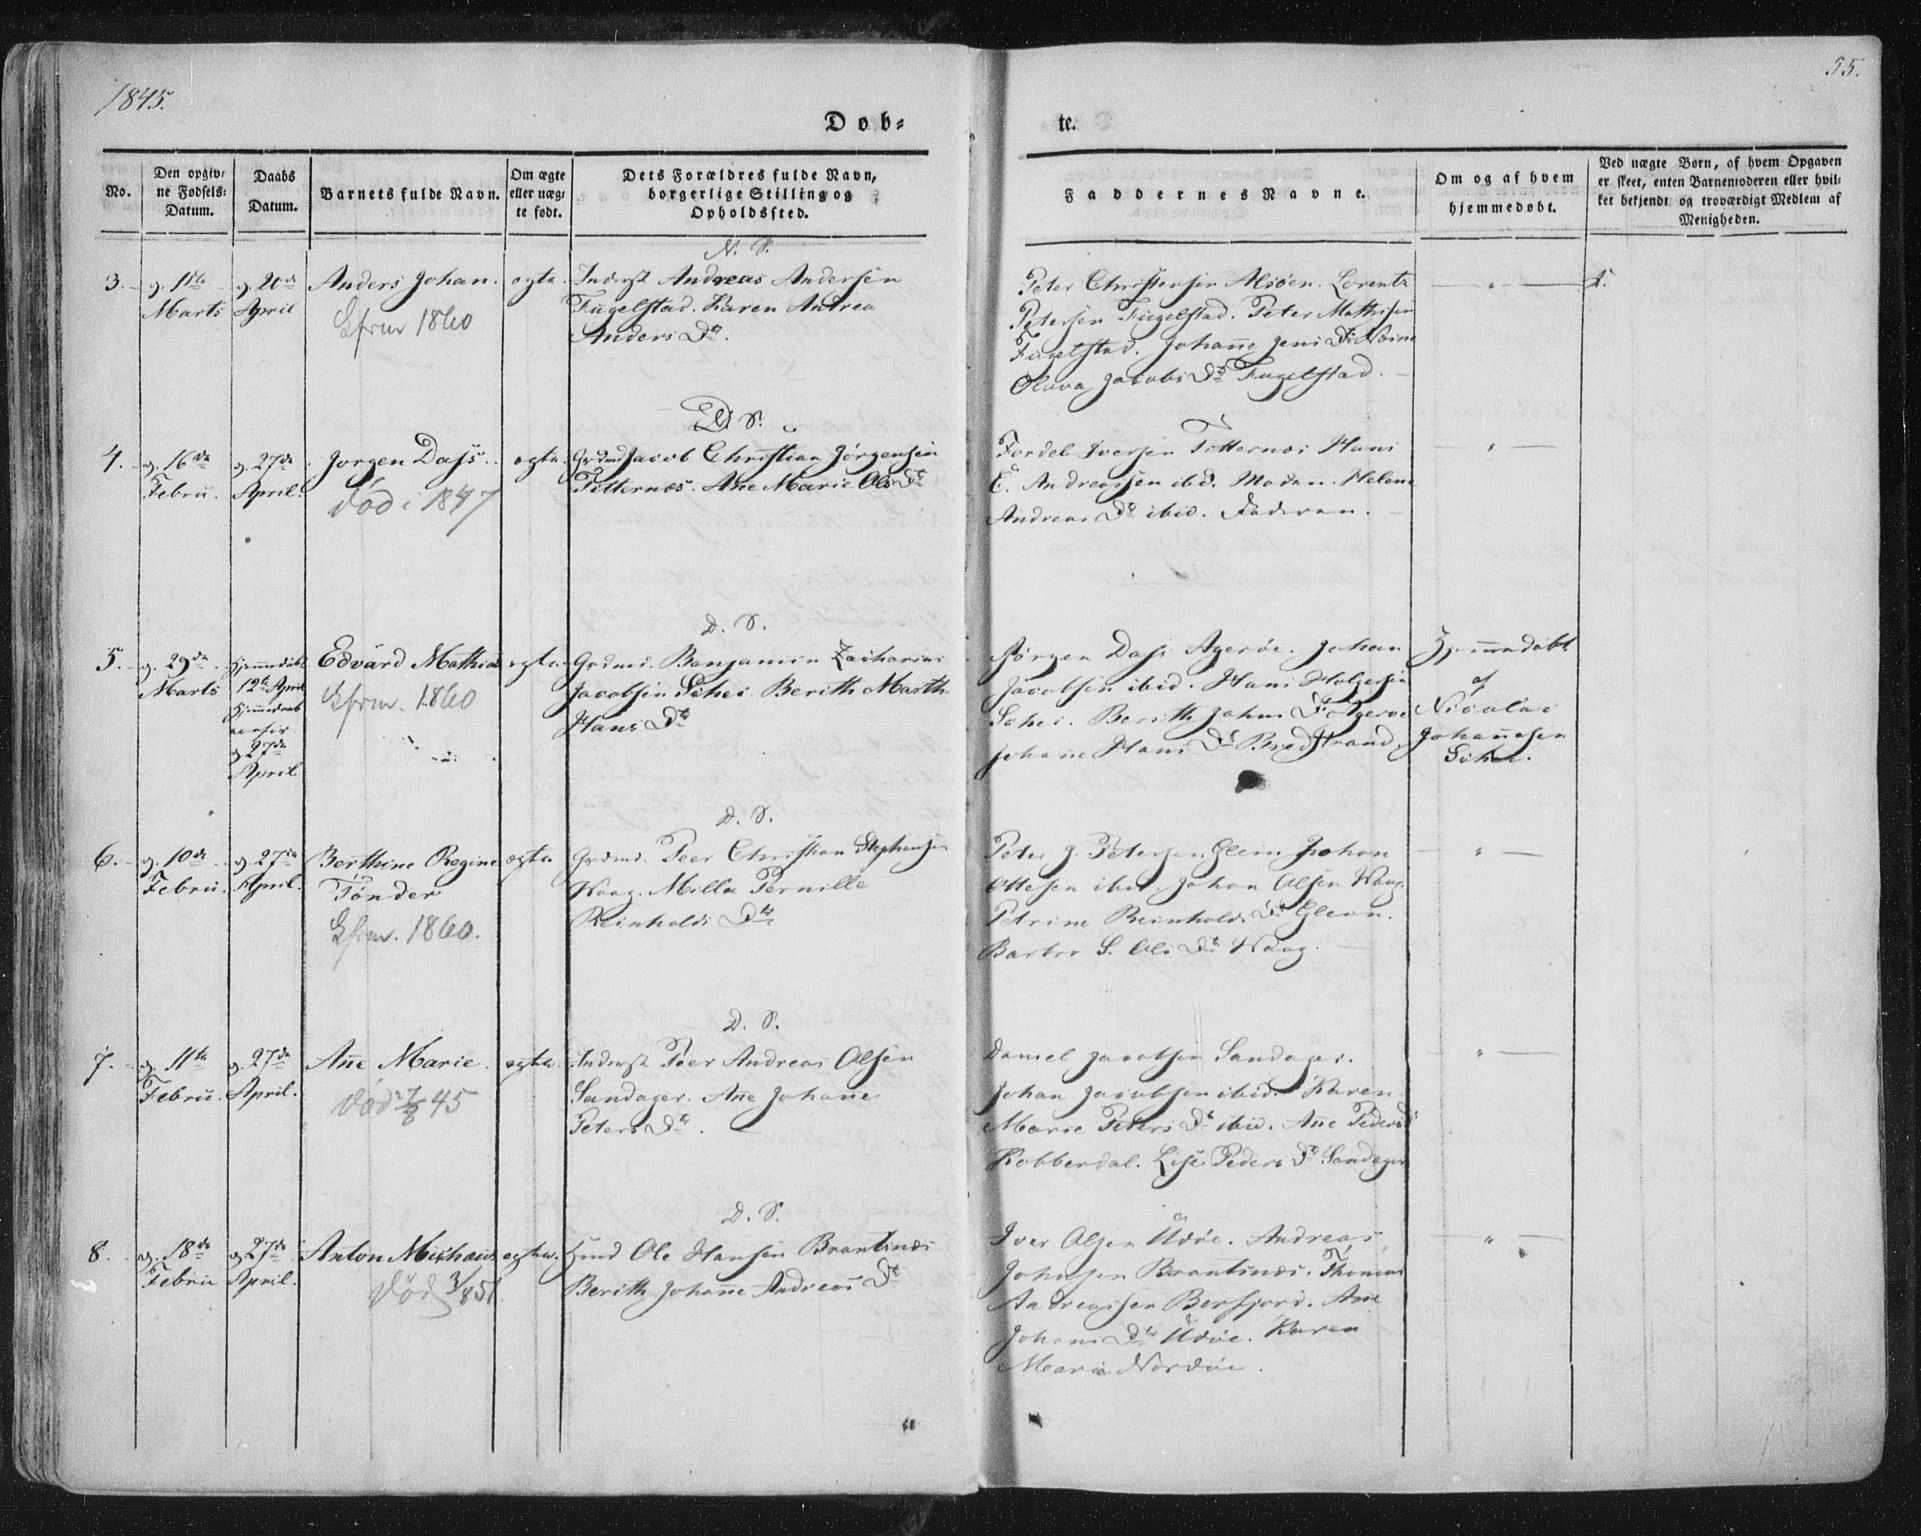 1845.
55.
Døb-
te.
No.
Den opgiv-
ne Fødsels-
Datum.
Daabs
Datum.
Barnets fulde Navn.
Om ægte
eller uæg-
te født.
Dets Forældres fulde Navn,
borgerlige Stilling og
Opholdssted.
Faddernes Navne.
Om og af hvem
hjemmedøbt.
Ved uægte Børn, af hvem Opgaven
er skeet, enten Barnemoderen eller hvil-
ket bekjendt og troværdigt Medlem af
Menigheden.
N. S.
3.
d. 11te
Marts
d. 20de
April
Anders Johan.
Cfrm 1860
egte.
Inderst Andreas Andersen
Fugelstad. Karen Andrea
Anders Dtr.
Peter Christensen Alsøen. Lorentz
Petersen Fugelstad. Peter Mathisen
Fugelstad. Johanne Jens Dtr
Olava Jacobs Dtr Fugelstad.
D. S.
4.
d. 16de
Febru.
d. 27de
April.
Jørgen Dass.
død i 1847
egte.
Grdmd Jacob Christian Jørgensen
Titternæs. Ane Marie Ols Dtr
Fordel Iversen Titternæs Hans
E. Andreassen ibid. Helene
Andreas Dtr ibid. Faderen.
D. S.
5.
d. 29de
Marts
Hjemmedøbt
12te April
d. 27de
April
Edvard Mathias
Cfrm. 1860
egte.
Grdmd. Benjamin Zacharias
Jacobsen Sehei. Berith Marth.
Hans Dtr
Jørgen Dass Agerøe. Johan
Jacobsen ibid. Hans Holgersen
Sehei. Berith Johns Dtr Agerøe
Johanne Hans Dtr Bredstrand.
Hjemmedøbt
af
Nicolai
Johannesen
D. S.
6.
d. 10de
Febru.
d. 27de
April.
Berthine Regine
Tønder
Cfrm. 1860.
egte
Grdmd. Peer Christian Stephansen
Waag. Milla Pernille
Reinholds Dtr.
Peter J. Petersen Glein Johan
Ottesen ibid. Johan Olsen Waag.
Petrine Reinholds Dtr Glein.
Barbro S. Ols Dtr Waag.
D. S.
7.
d. 11te
Febru.
d. 27de
April.
Ane Marie.
død 45
egte.
Inderst Peer Andreas Olsen
Sandager. Ane Johanne
Peters Dtr.
Daniel Jacobsen Sandager.
Johan Jacobsen ibid. Karen
Marie Peters Dtr ibid. Ane Peders
Kobberdal. Lise Peders Dtr Sandager
D. S.
8.
d. 18de
Febru
d. 27de
April.
Anton Michael
død 3/8 51
egte.
Huusmd Ole Hansen Brantsnæs
Berith Johanne Andreas Dtr
Iver Olsen Udøe. Andreas
Johnsen Brantsnæs. Thomas
Andreassen Berfjord. Ane
Johans Dtr Udøe. Karen
Maria Nordøe.